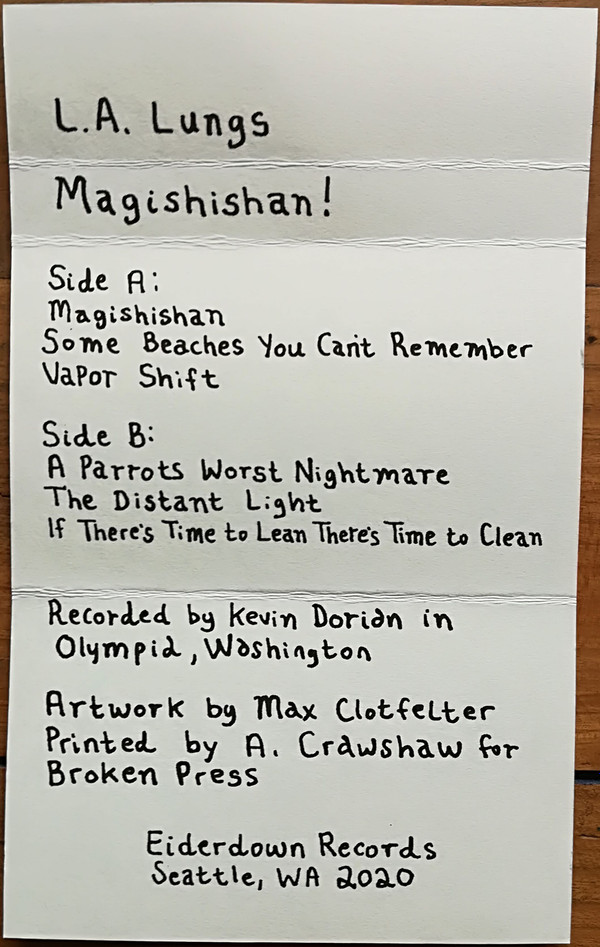 L.A. Lungs
Magishishan!
Side A:
Magishishan
Some Beaches You Can't Remember
Vapor Shift
Side B:
A Parrots Worst Nightmare
The Distant Light
If There's Time to Lean There's Time to Clean
Recorded by Kevin Dorian in
Olympia, Washington
Artwork by Max Clotfelter
Printed by A. Crawshaw for
Broken Press
Eiderdown Records
Seattle, WA 2020